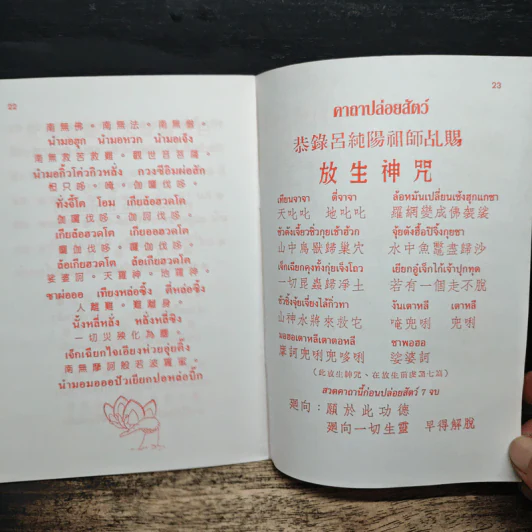 22
南無佛。南無法。南無僧。
นำมอฮุก นำมอหวก นำมอเจ็ง
南無救苦救難。觀世音菩薩。
นำมอกิ้วโค่วกิวหลั่ง กวงซีอิมผ่อสัก
怛只哆。唵。伽囉伐哆。
ทั่งจี้โต โอม เกียล้อฮวดโต
伽囉伐哆。伽訶伐哆。
เกียล้อฮวดโต เกียออฮวดโต
囉伽伐哆。囉伽伐哆。
ล้อเกียฮวดโต ล้อเกียฮวดโต
娑婆訶。天羅神。地羅神。
ซาผ่อออ เทียงหล่อซิ้ง ตี่หล่อซิ้ง
人離難。難離身。
นั้งหลี่หลั่ง หลั่งหลี่ซิง
一切災殃化為塵。
เจ็กเฉียกไจเอียงห่วยลุ่ยติ๊ง
南無摩訶般若波羅蜜。
นำมอมอออปัวเยียกปอหล่อบิ๊ก
23
คาถาปล่อยสัตว์
恭錄呂純陽祖師乩賜
放生神咒
เทียนจาจา ตี่จาจา ล้อหมันเปลี่ยนเซ้งฮุกแกซา
天叱叱 地叱叱 羅網變成佛袈裟
ซัวตังเจี้ยวซิ่วกุยเช้าฮ้วก จุ้ยตังฮื้อปิจิ้งกุยซา
山中鳥獸歸巢穴 水中魚鱉盡歸沙
เจ็กเฉียกคุงทั้งกุ่ยเจ็งโถว เยียกอู่เจ็กไก้เจ้าปุกทุด
一切昆蟲歸淨土 若有一個走不脫
ซัวซิ้งจุ้ยเจี่ยงไล้กิ่วทา งันเตาหลี เตาหลี
山神水將來救它 唵兜唎 兜唎
มอฮอเตาหลีเตาตอหลี ซาพอฮอ
摩訶兜唎兜哆唎 娑婆訶
(此放生神咒、在放生前虔誦七遍)
สวดคาถานี้ก่อนปล่อยสัตว์ 7 จบ
廻向：願於此功德
廻向一切生靈 早得解脫